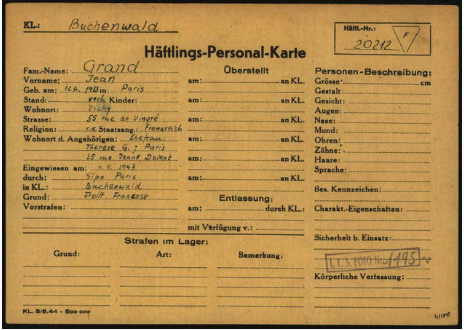 KL.: Buchenwald
Häftl.-Nr.:
20212
F
Häftlings-Personal-Karte
Fam.-Name: Grand
Vorname: Jean
Geb. am: 1913 in: Paris
Stand: verh. Kinder:
Wohnort: Vichy
Strasse: 55 rue de Vingré
Religion: r.k. Staatsang.: Frankreich
Wohnort d. Angehörigen: Ehefrau:
Therese G.; Paris
25 rue Jeant Dolent
Eingewiesen am: 4.9.1943
durch: Sipo Paris
in KL.: Buchenwald
Grund: Polit. Franzose
Vorstrafen:
Überstellt
am: an KL.
am: an KL.
am: an KL.
am: an KL.
am: an KL.
am: an KL.
Entlassung:
am: durch KL.:
mit Verfügung v.:
Personen-Beschreibung:
Grösse: cm
Gestalt:
Gesicht:
Augen:
Nase:
Mund:
Ohren:
Zähne:
Haare:
Sprache:
Bes. Kennzeichen:
Charakt.-Eigenschaften:
Sicherheit b. Einsatz:
I.T.S. FOTO Nr. 1195
Körperliche Verfassung:
Strafen im Lager:
Grund: Art: Bemerkung:
KL. 5/6.44 - 500 000